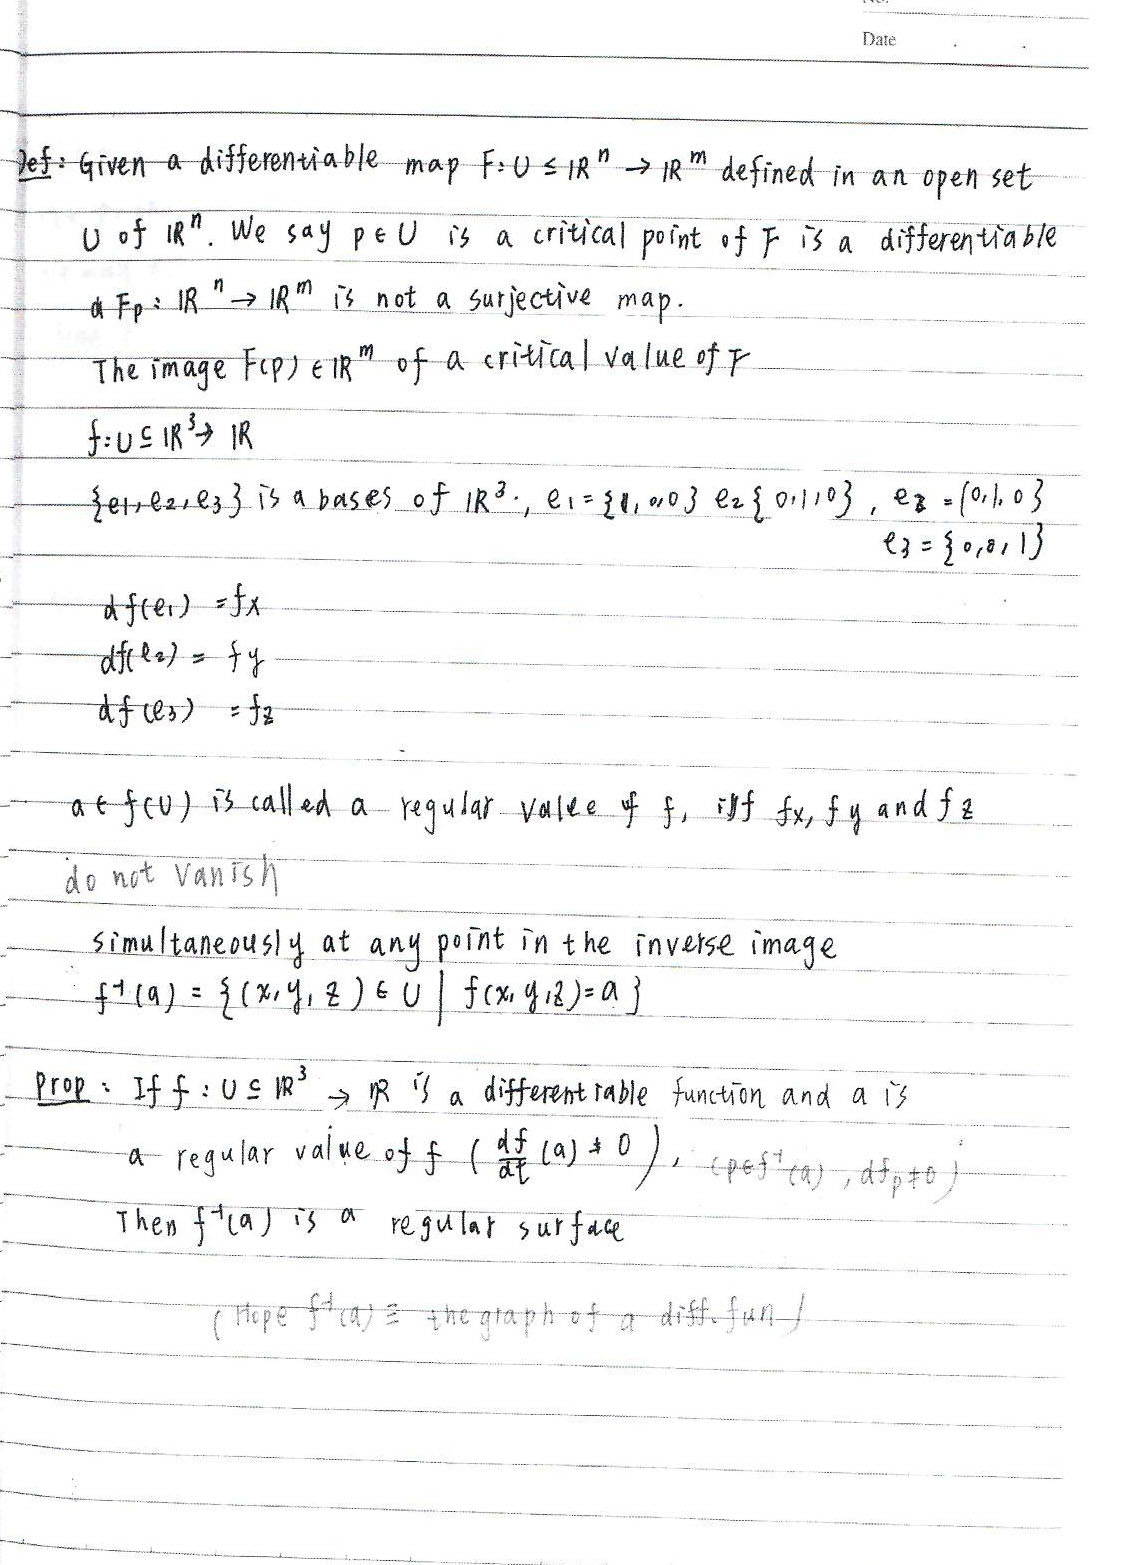 No.
Date . .
Def: Given a differentiable map F: U ≤ ℝⁿ → ℝᵐ defined in an open set
U of ℝⁿ. We say p ∈ U is a critical point of F is a differentiable
dFp: ℝⁿ → ℝᵐ is not a surjective map.
The image F(p) ∈ ℝᵐ of a critical value of F
f: U ⊆ ℝ³ → ℝ
{e1, e2, e3} is a bases of ℝ³., e1 = {1, 0, 0} e2 { 0, 1, 0}, e2 = {0, 1, 0}
e3 = {0, 0, 1}
df(e1) = fx
df(e2) = fy
df(e3) = fz
a ∈ f(U) is called a regular value of f, iff fx, fy and fz
do not vanish
simultaneously at any point in the inverse image
f⁻¹(a) = {(x, y, z) ∈ U | f(x, y, z) = a}
Prop: If f: U ⊆ ℝ³ → ℝ is a differentiable function and a is
a regular value of f (df/dt (a) ≠ 0), (p ∈ f⁻¹(a), dfp ≠ 0)
Then f⁻¹(a) is a regular surface
(Hope f⁻¹(a) ≡ the graph of a diff. fun)